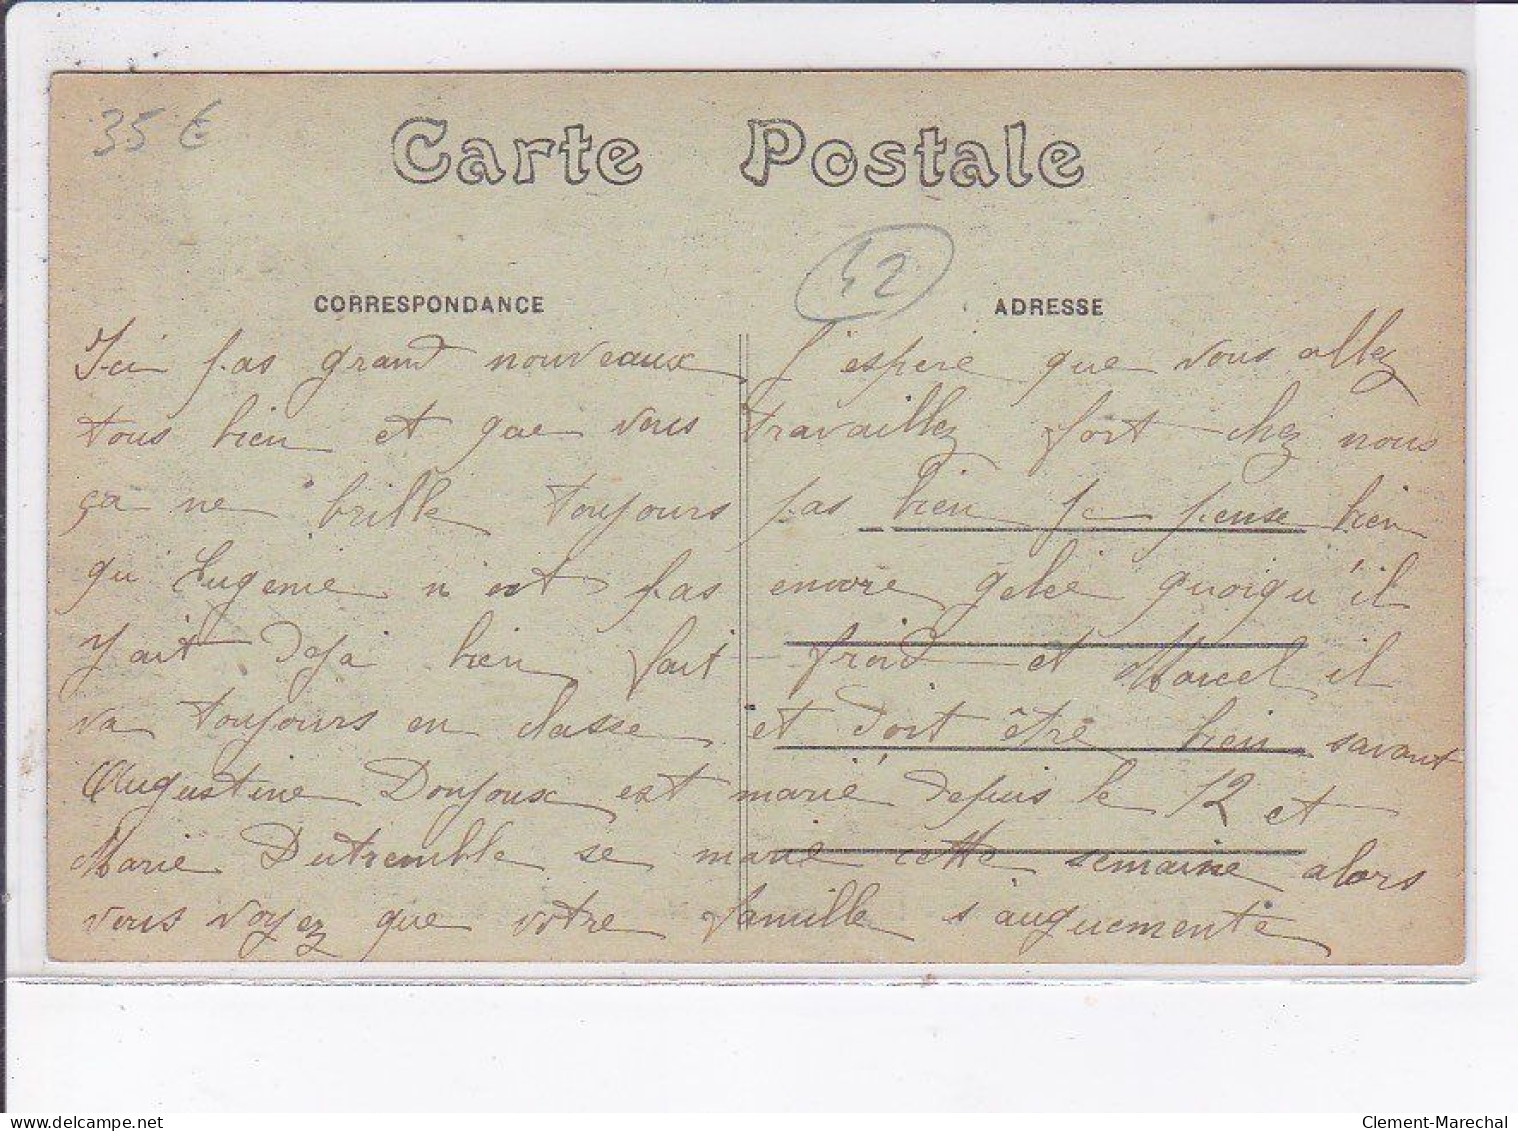 35 €
Carte Postale
42
CORRESPONDANCE ADRESSE
Ici pas grand nouveaux J'espere que vous allez
tous bien et que vous travaillez fort chez nous
ça ne brille toujours pas bien je pense bien
qu'Eugenie n'est pas encore gelée quoiqu'il
y ait deja bien fait froid et Marcel il
va toujours en classe et doit être bien savant
Augustine Donjoux est marié depuis le 12 et
Marie Dutremble se marie cette semaine alors
vous voyez que votre famille s'auguemente
delcampe.net
Clement-Marechal